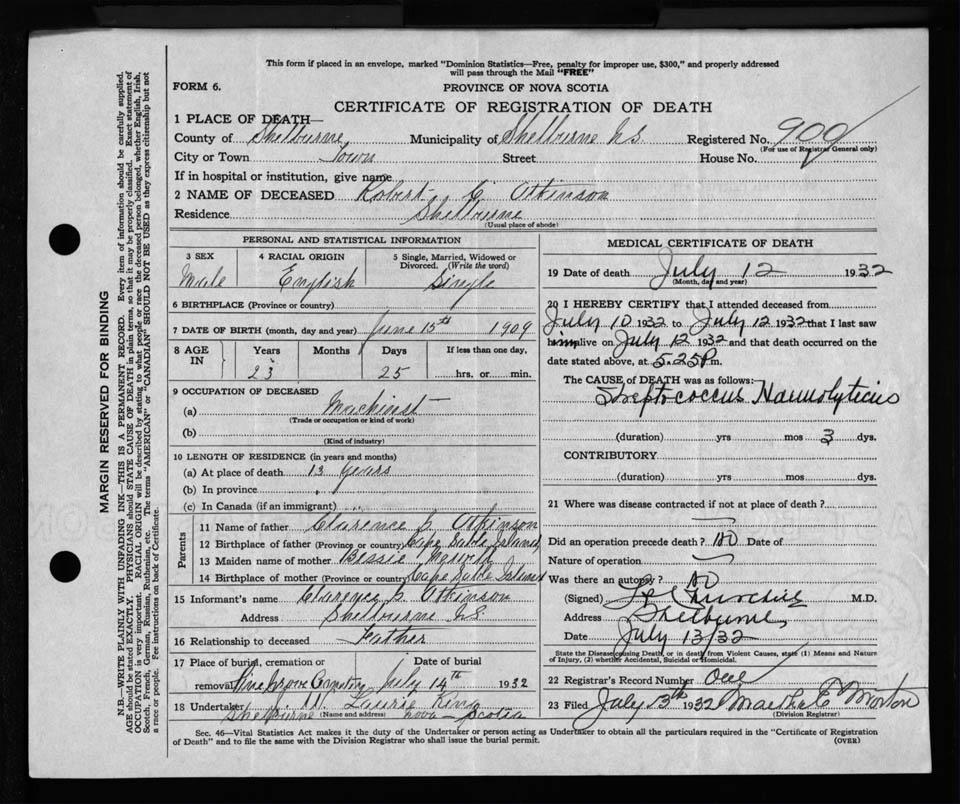 This form if placed in an envelope, marked "Dominion Statistics—Free, penalty for improper use, $300," and properly addressed
will pass through the Mail "FREE"
FORM 6.
PROVINCE OF NOVA SCOTIA
CERTIFICATE OF REGISTRATION OF DEATH
1 PLACE OF DEATH—
County of Shelburne Municipality of Shelburne N.S Registered No. 900
(For use of Registrar General only)
City or Town Town Street House No.
If in hospital or institution, give name
2 NAME OF DECEASED Robert C. Atkinson
Residence Shelburne
(Usual place of abode)
PERSONAL AND STATISTICAL INFORMATION
3 SEX 4 RACIAL ORIGIN 5 Single, Married, Widowed or
Divorced. (Write the word)
Male English Single
6 BIRTHPLACE (Province or country)
7 DATE OF BIRTH (month, day and year) June 15th 1909
8 AGE IN Years Months Days If less than one day,
23 25 hrs. or min.
9 OCCUPATION OF DECEASED
(a) Machinist
(Trade or occupation or kind of work)
(b)
(Kind of industry)
10 LENGTH OF RESIDENCE (in years and months)
(a) At place of death 13 years
(b) In province
(c) In Canada (if an immigrant)
Parents
11 Name of father Clarence S. Atkinson
12 Birthplace of father (Province or country) Cape Sable Island
13 Maiden name of mother Bessie
14 Birthplace of mother (Province or country) Cape Sable Island
15 Informant's name Clarence S. Atkinson
Address Shelburne N.S
16 Relationship to deceased Father
17 Place of burial, cremation or Date of burial
removal Pine Grove Cemetery July 14th 1932
18 Undertaker W. King
Shelburne (Name and address) Nova Scotia
MEDICAL CERTIFICATE OF DEATH
19 Date of death July 12 1932
(Month, day and year)
20 I HEREBY CERTIFY that I attended deceased from
July 10 1932 to July 12 1932 that I last saw
him alive on July 12 1932 and that death occurred on the
date stated above, at 5.25 P.m.
The CAUSE of DEATH was as follows:
Streptococcus Haemolyticus
(duration) yrs mos 3 dys.
CONTRIBUTORY
(duration) yrs mos dys.
21 Where was disease contracted if not at place of death?
Did an operation precede death? no Date of
Nature of operation
Was there an autopsy? no
(Signed) Churchill M.D.
Address Shelburne
Date July 13/32
State the Disease causing Death, or in death from Violent Causes, state (1) Means and Nature
of Injury, (2) whether Accidental, Suicidal or Homicidal.
22 Registrar's Record Number One
23 Filed July 13th 1932 Martha E Morton
(Division Registrar)
Sec. 46—Vital Statistics Act makes it the duty of the Undertaker or person acting as Undertaker to obtain all the particulars required in the "Certificate of Registration
of Death" and to file the same with the Division Registrar who shall issue the burial permit. (OVER)
MARGIN RESERVED FOR BINDING
N.B.—WRITE PLAINLY WITH UNFADING INK—THIS IS A PERMANENT RECORD. Every item of information should be carefully supplied.
AGE should be stated EXACTLY. PHYSICIANS should STATE CAUSE OF DEATH in plain terms, so that it may be properly classified. Exact statement of
OCCUPATION is very important. RACIAL ORIGIN will be described by stating to what people or race the deceased person belonged, whether English, Irish,
Scotch, French, German, Russian, Ruthenian, etc. The terms "AMERICAN" or "CANADIAN" SHOULD NOT BE USED as they express citizenship but not
a race or people. Fee instructions on back of Certificate.